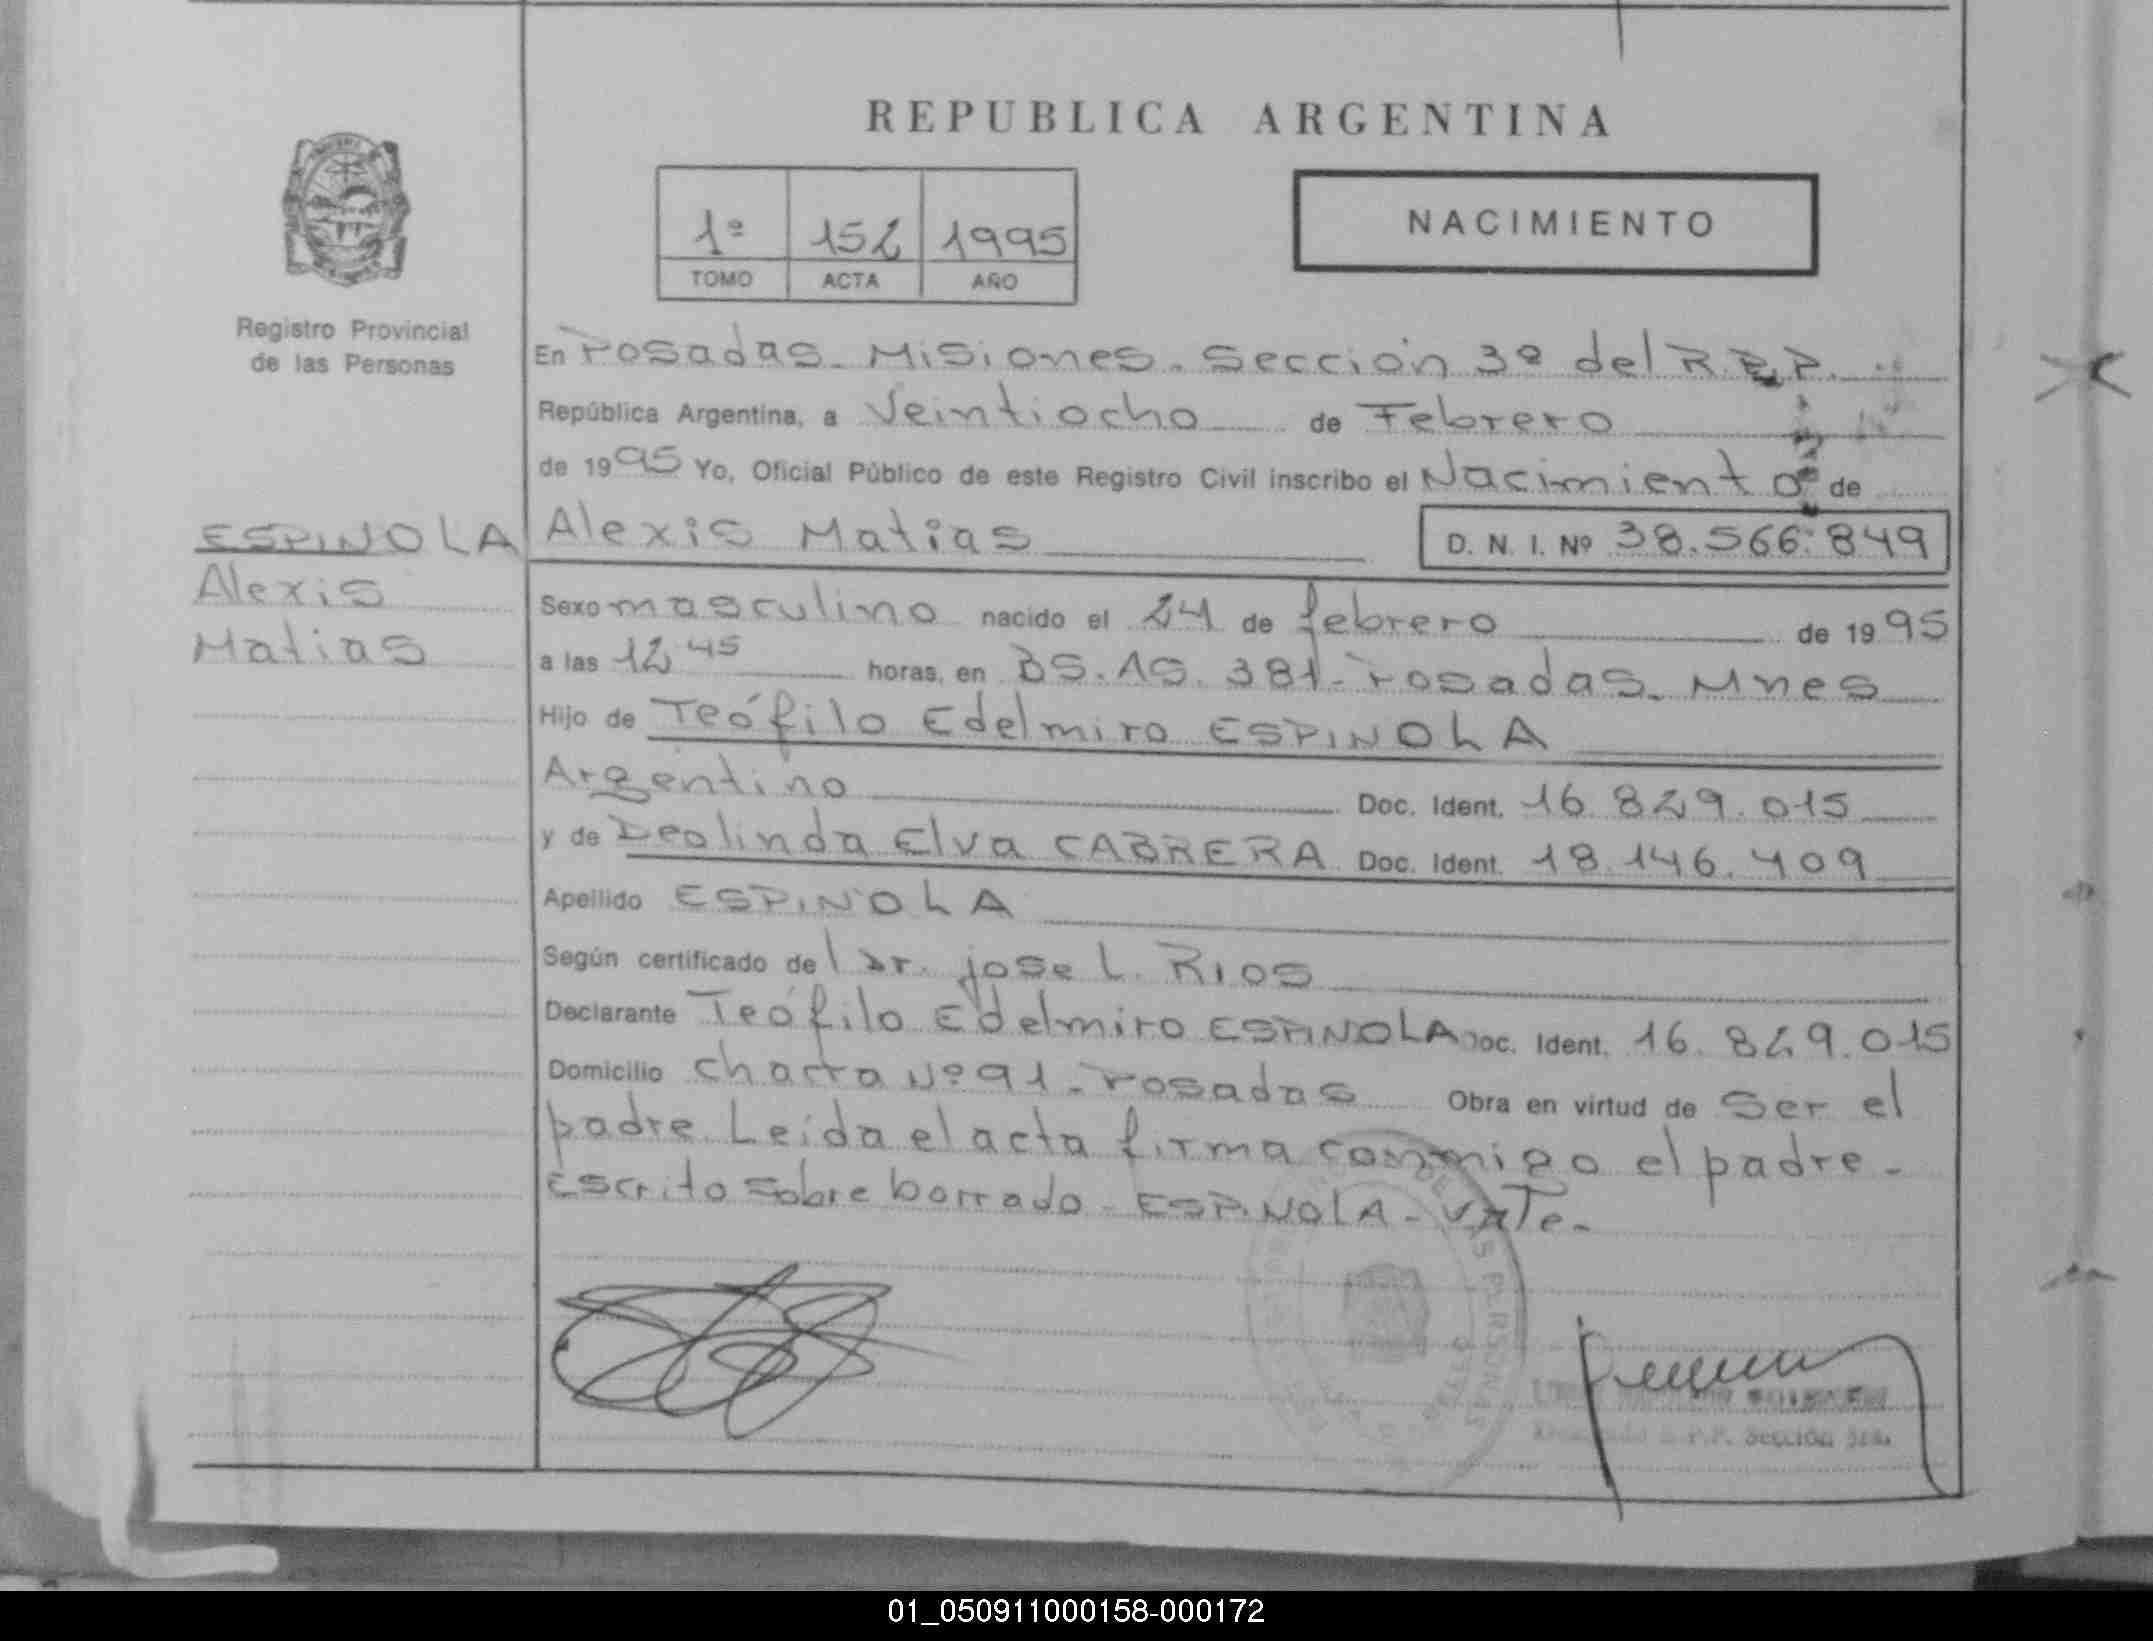 REPUBLICA ARGENTINA
1º 152 1995
TOMO ACTA AÑO
NACIMIENTO
Registro Provincial
de las Personas
ESPINOLA
Alexis
Matias
En Posadas - Misiones. Sección 3º del R.P.P.
República Argentina, a Veintiocho de Febrero
de 1995 Yo, Oficial Público de este Registro Civil inscribo el Nacimiento de
Alexis Matias D. N. I. Nº 38.566.849
Sexo masculino nacido el 24 de febrero de 1995
a las 12 45 horas, en BS. AS. 381 - Posadas - Mnes
Hijo de Teófilo Edelmiro ESPINOLA
Argentino Doc. Ident. 16.829.015
y de Deolinda Elva CABRERA Doc. Ident. 18.146.409
Apellido ESPINOLA
Según certificado del Dr. jose L. RIOS
Declarante Teófilo Edelmiro ESPINOLA Doc. Ident. 16.829.015
Domicilio Chacra Nº 91 - Posadas Obra en virtud de Ser el
padre Leída el acta firma conmigo el padre -
Escrito sobre borrado - ESPINOLA - VALE -
DE LAS PERSONAS
R.P.P. Sección 3ra.
01_050911000158-000172